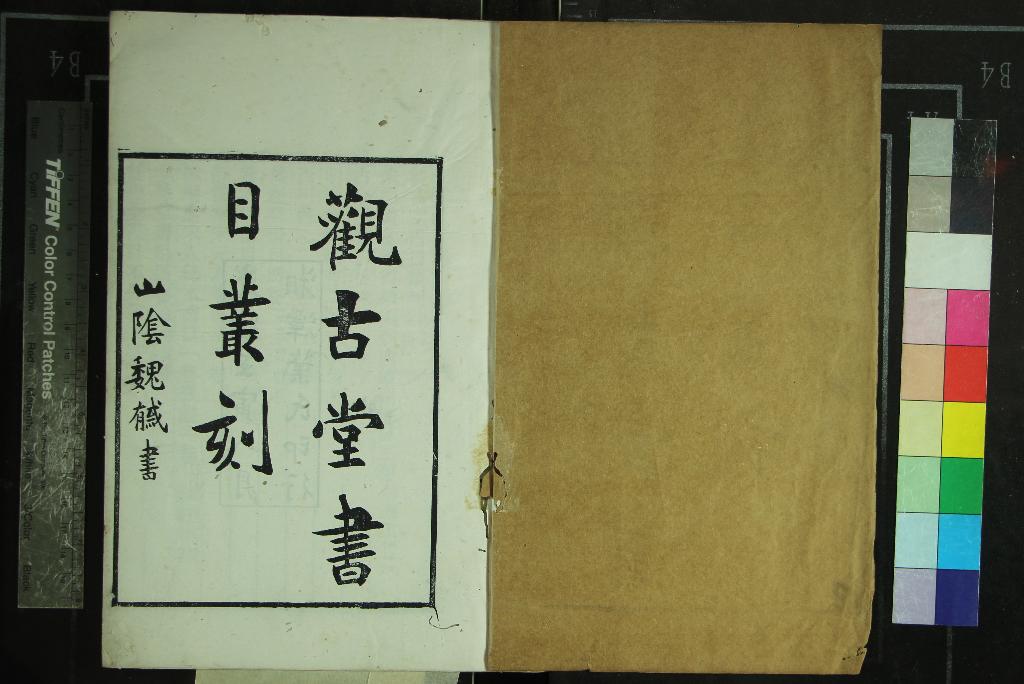 觀古堂書
目叢刻
山陰魏戫書
TIFFEN Color Control Patches
Blue
Cyan
Green
Yellow
Red
Magenta
White
3/Color
Black
B4
B4